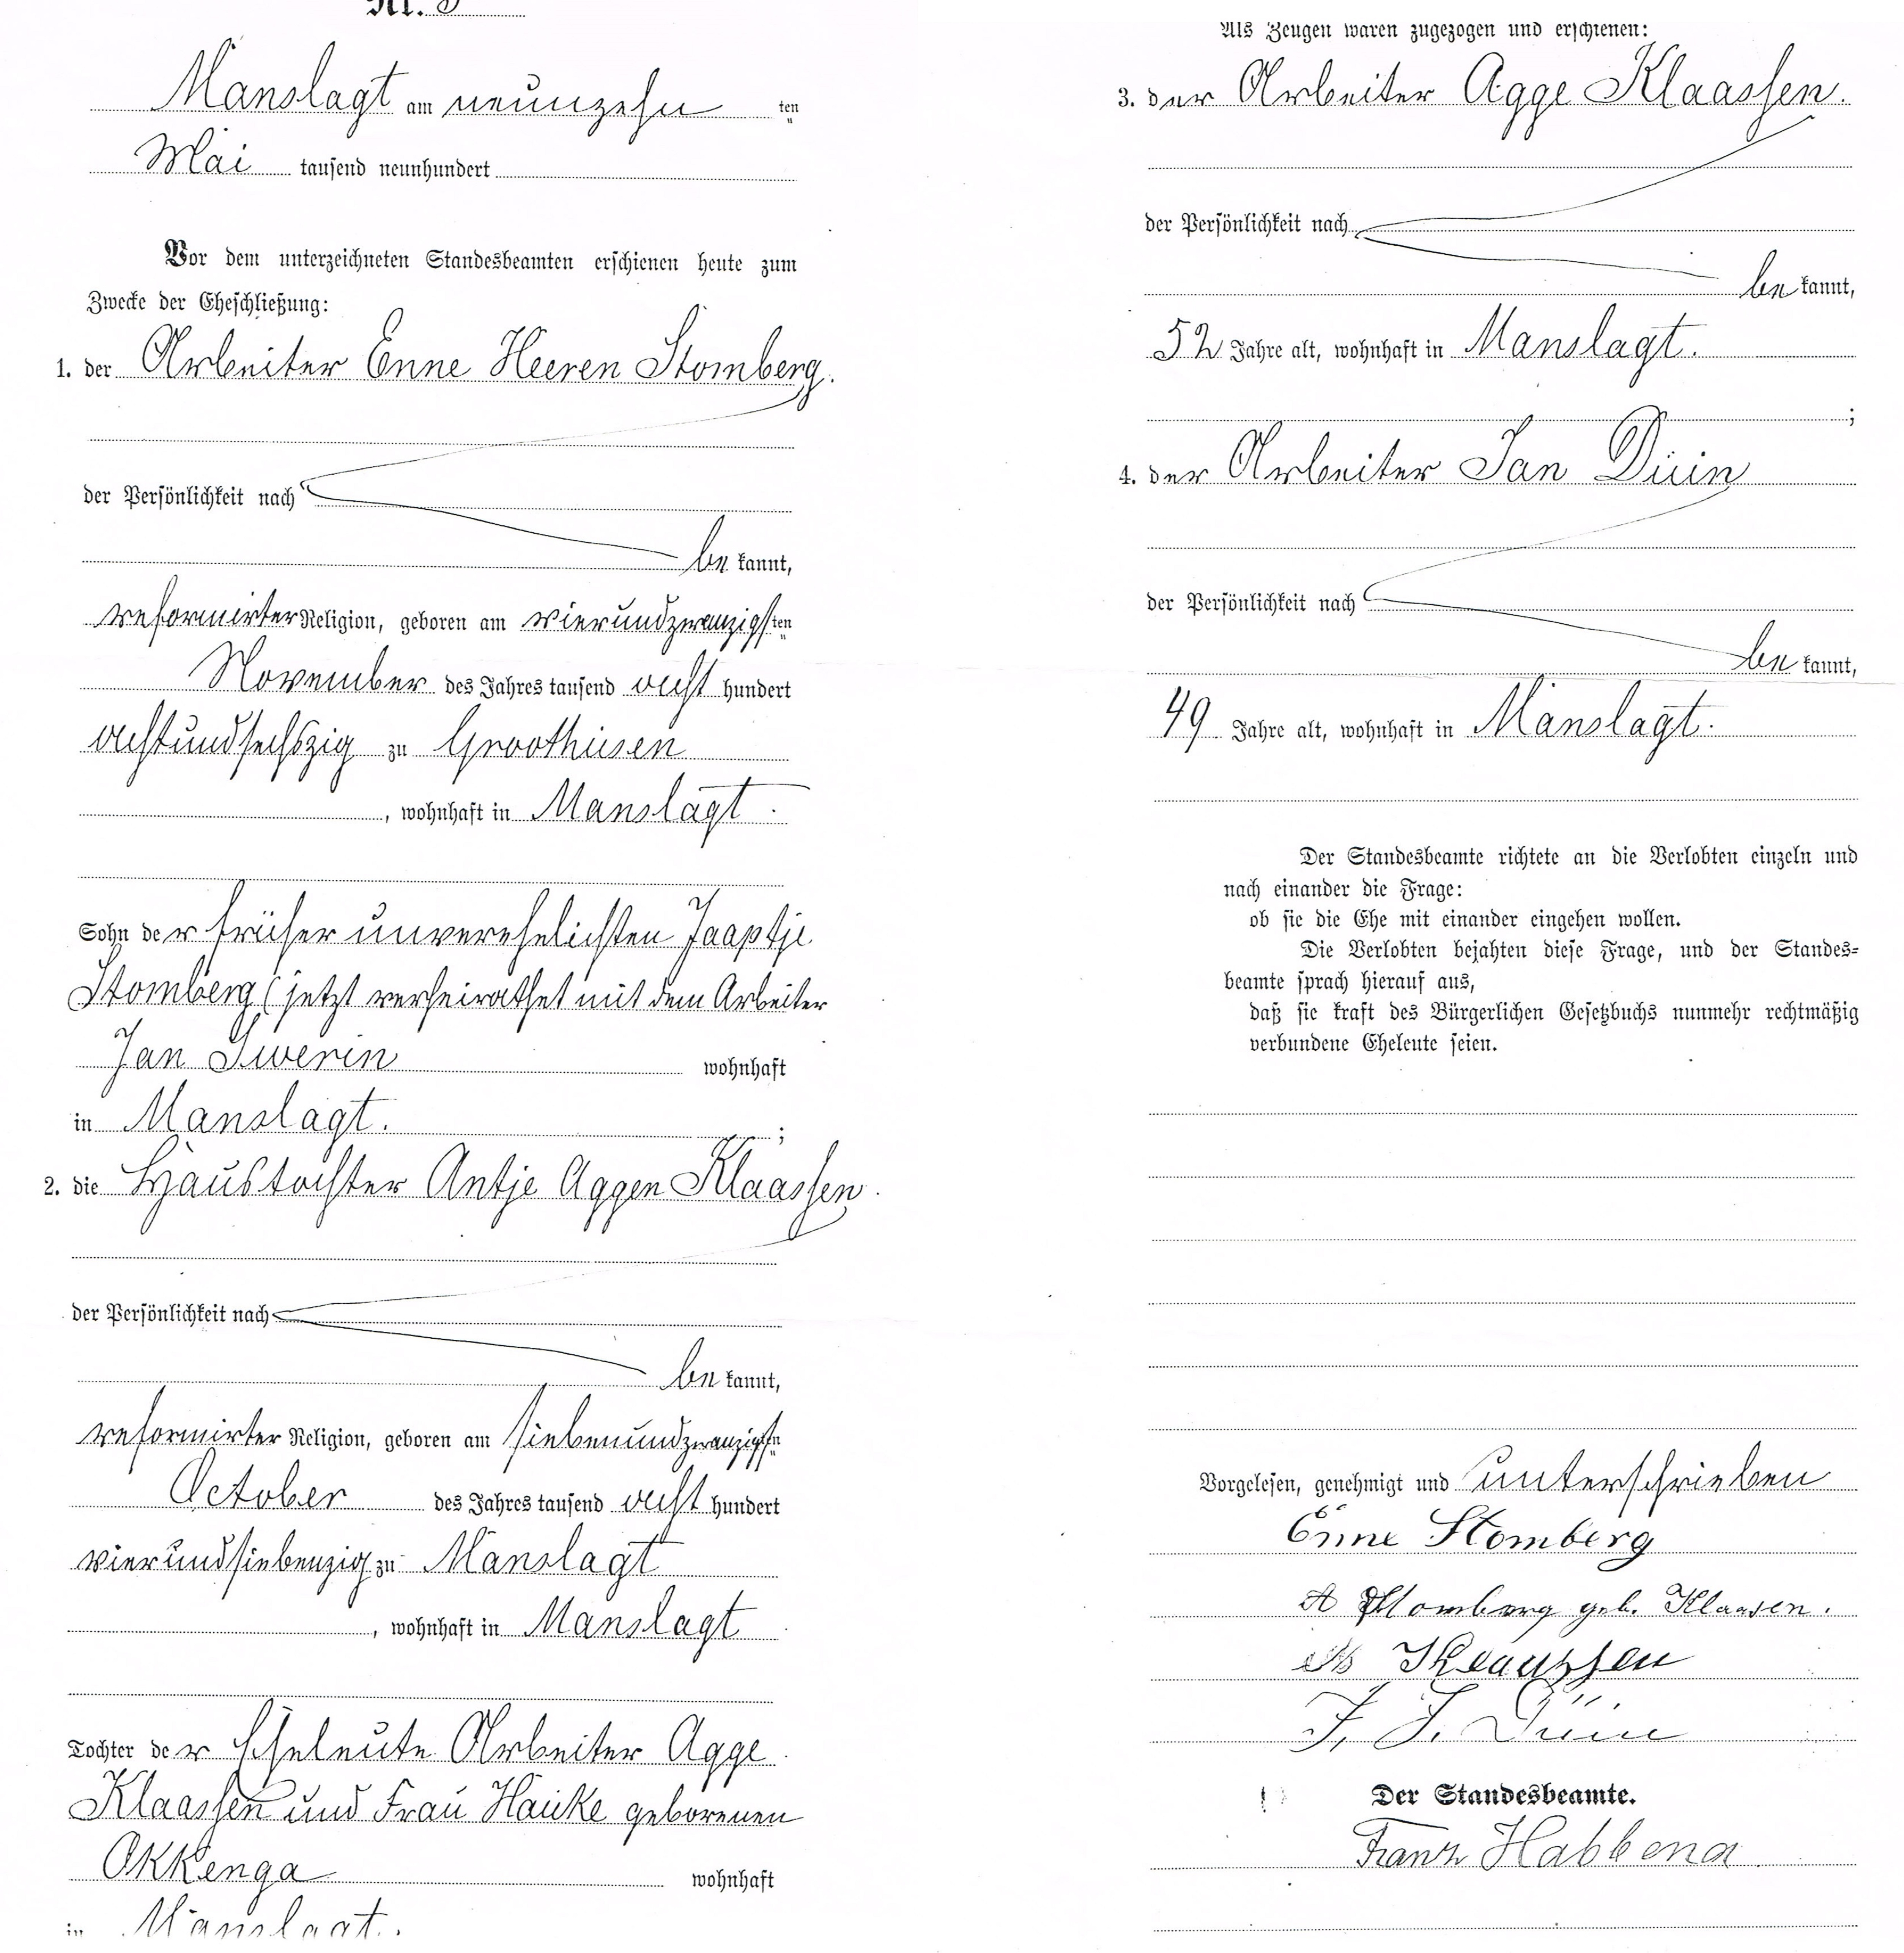 Nr. 5
Manslagt am neunzehn ten
Mai tausend neunhundert
Vor dem unterzeichneten Standesbeamten erschienen heute zum
Zwecke der Eheschließung:
1. der Arbeiter Enne Heeren Stomberg.
der Persönlichkeit nach
be kannt,
reformirter Religion, geboren am vierundzwanzigsten
November des Jahres tausend acht hundert
achtundsechszig zu Groothusen
, wohnhaft in Manslagt.
Sohn der früher unverehelichten Jaaptje
Stomberg (jetzt verheirathet mit dem Arbeiter
Jan wohnhaft
in Manslagt. ;
2. die Haustochter Antje Aggen Klaassen.
der Persönlichkeit nach
be kannt,
reformirter Religion, geboren am siebenundzwanzigsten
October des Jahres tausend acht hundert
vierundsiebenzig zu Manslagt
, wohnhaft in Manslagt
Tochter der Eheleute Arbeiter Agge
Klaassen und Frau Hauke geborenen
Okkenga wohnhaft
in Manslagt.
Als Zeugen waren zugezogen und erschienen:
3. der Arbeiter Agge Klaassen.
der Persönlichkeit nach
be kannt,
52 Jahre alt, wohnhaft in Manslagt.
;
4. der Arbeiter Jan Düin
der Persönlichkeit nach
be kannt,
49 Jahre alt, wohnhaft in Manslagt.
Der Standesbeamte richtete an die Verlobten einzeln und
nach einander die Frage:
ob sie die Ehe mit einander eingehen wollen.
Die Verlobten bejahten diese Frage, und der Standes-
beamte sprach hierauf aus,
daß sie kraft des Bürgerlichen Gesetzbuchs nunmehr rechtmäßig
verbundene Eheleute seien.
Vorgelesen, genehmigt und unterschrieben
Enne Stomberg
A Stomberg geb. Klaasen.
Klaassen
J. J. Düin
Der Standesbeamte.
Franz Habbena